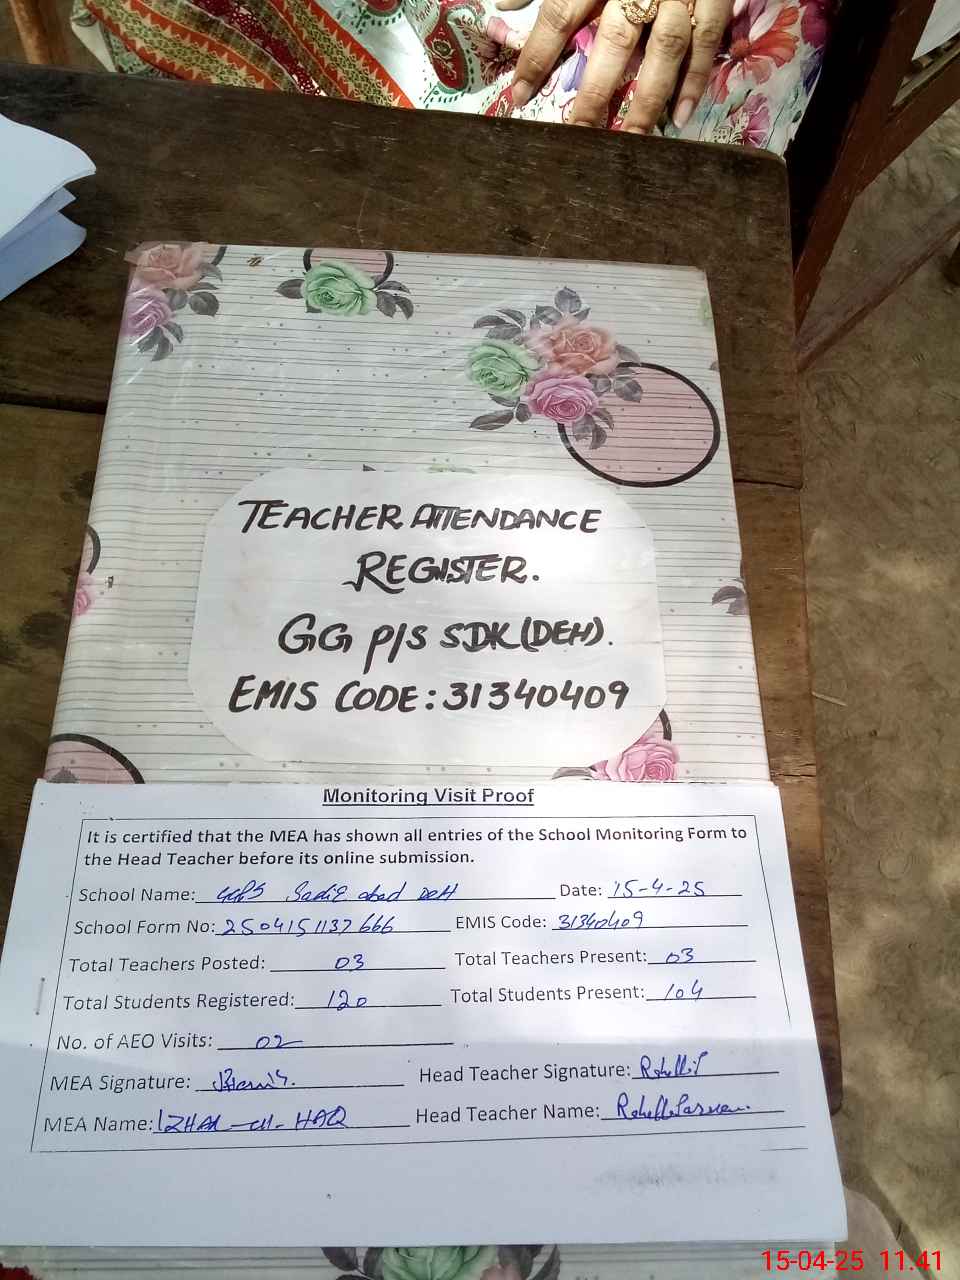 TEACHER ATTENDANCE
REGISTER.
GG P/S SDK (DEH).
EMIS CODE: 31340409
Monitoring Visit Proof
It is certified that the MEA has shown all entries of the School Monitoring Form to
the Head Teacher before its online submission.
School Name: GGPS Sadiq abad DEH Date: 15-4-25
School Form No: 2504151137666 EMIS Code: 31340409
Total Teachers Posted: 03 Total Teachers Present: 03
Total Students Registered: 120 Total Students Present: 104
No. of AEO Visits: 02
MEA Signature: Head Teacher Signature:
MEA Name: IZHAR-ul-HAQ Head Teacher Name:
15-04-25 11.41